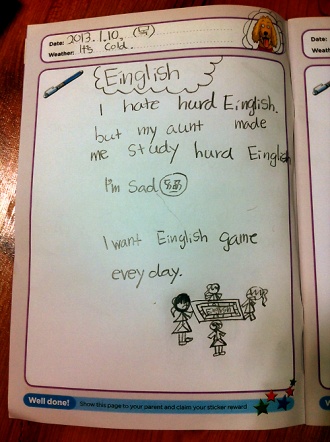 Date: 2013.1.10.
Weather: It's Cold.
Einglish
I hate hurd Einglish.
but my aunt made
me study hurd Einglish
I'm Sad
I want Einglish game
evey day.
Well done! Show this page to your parent and claim your sticker reward